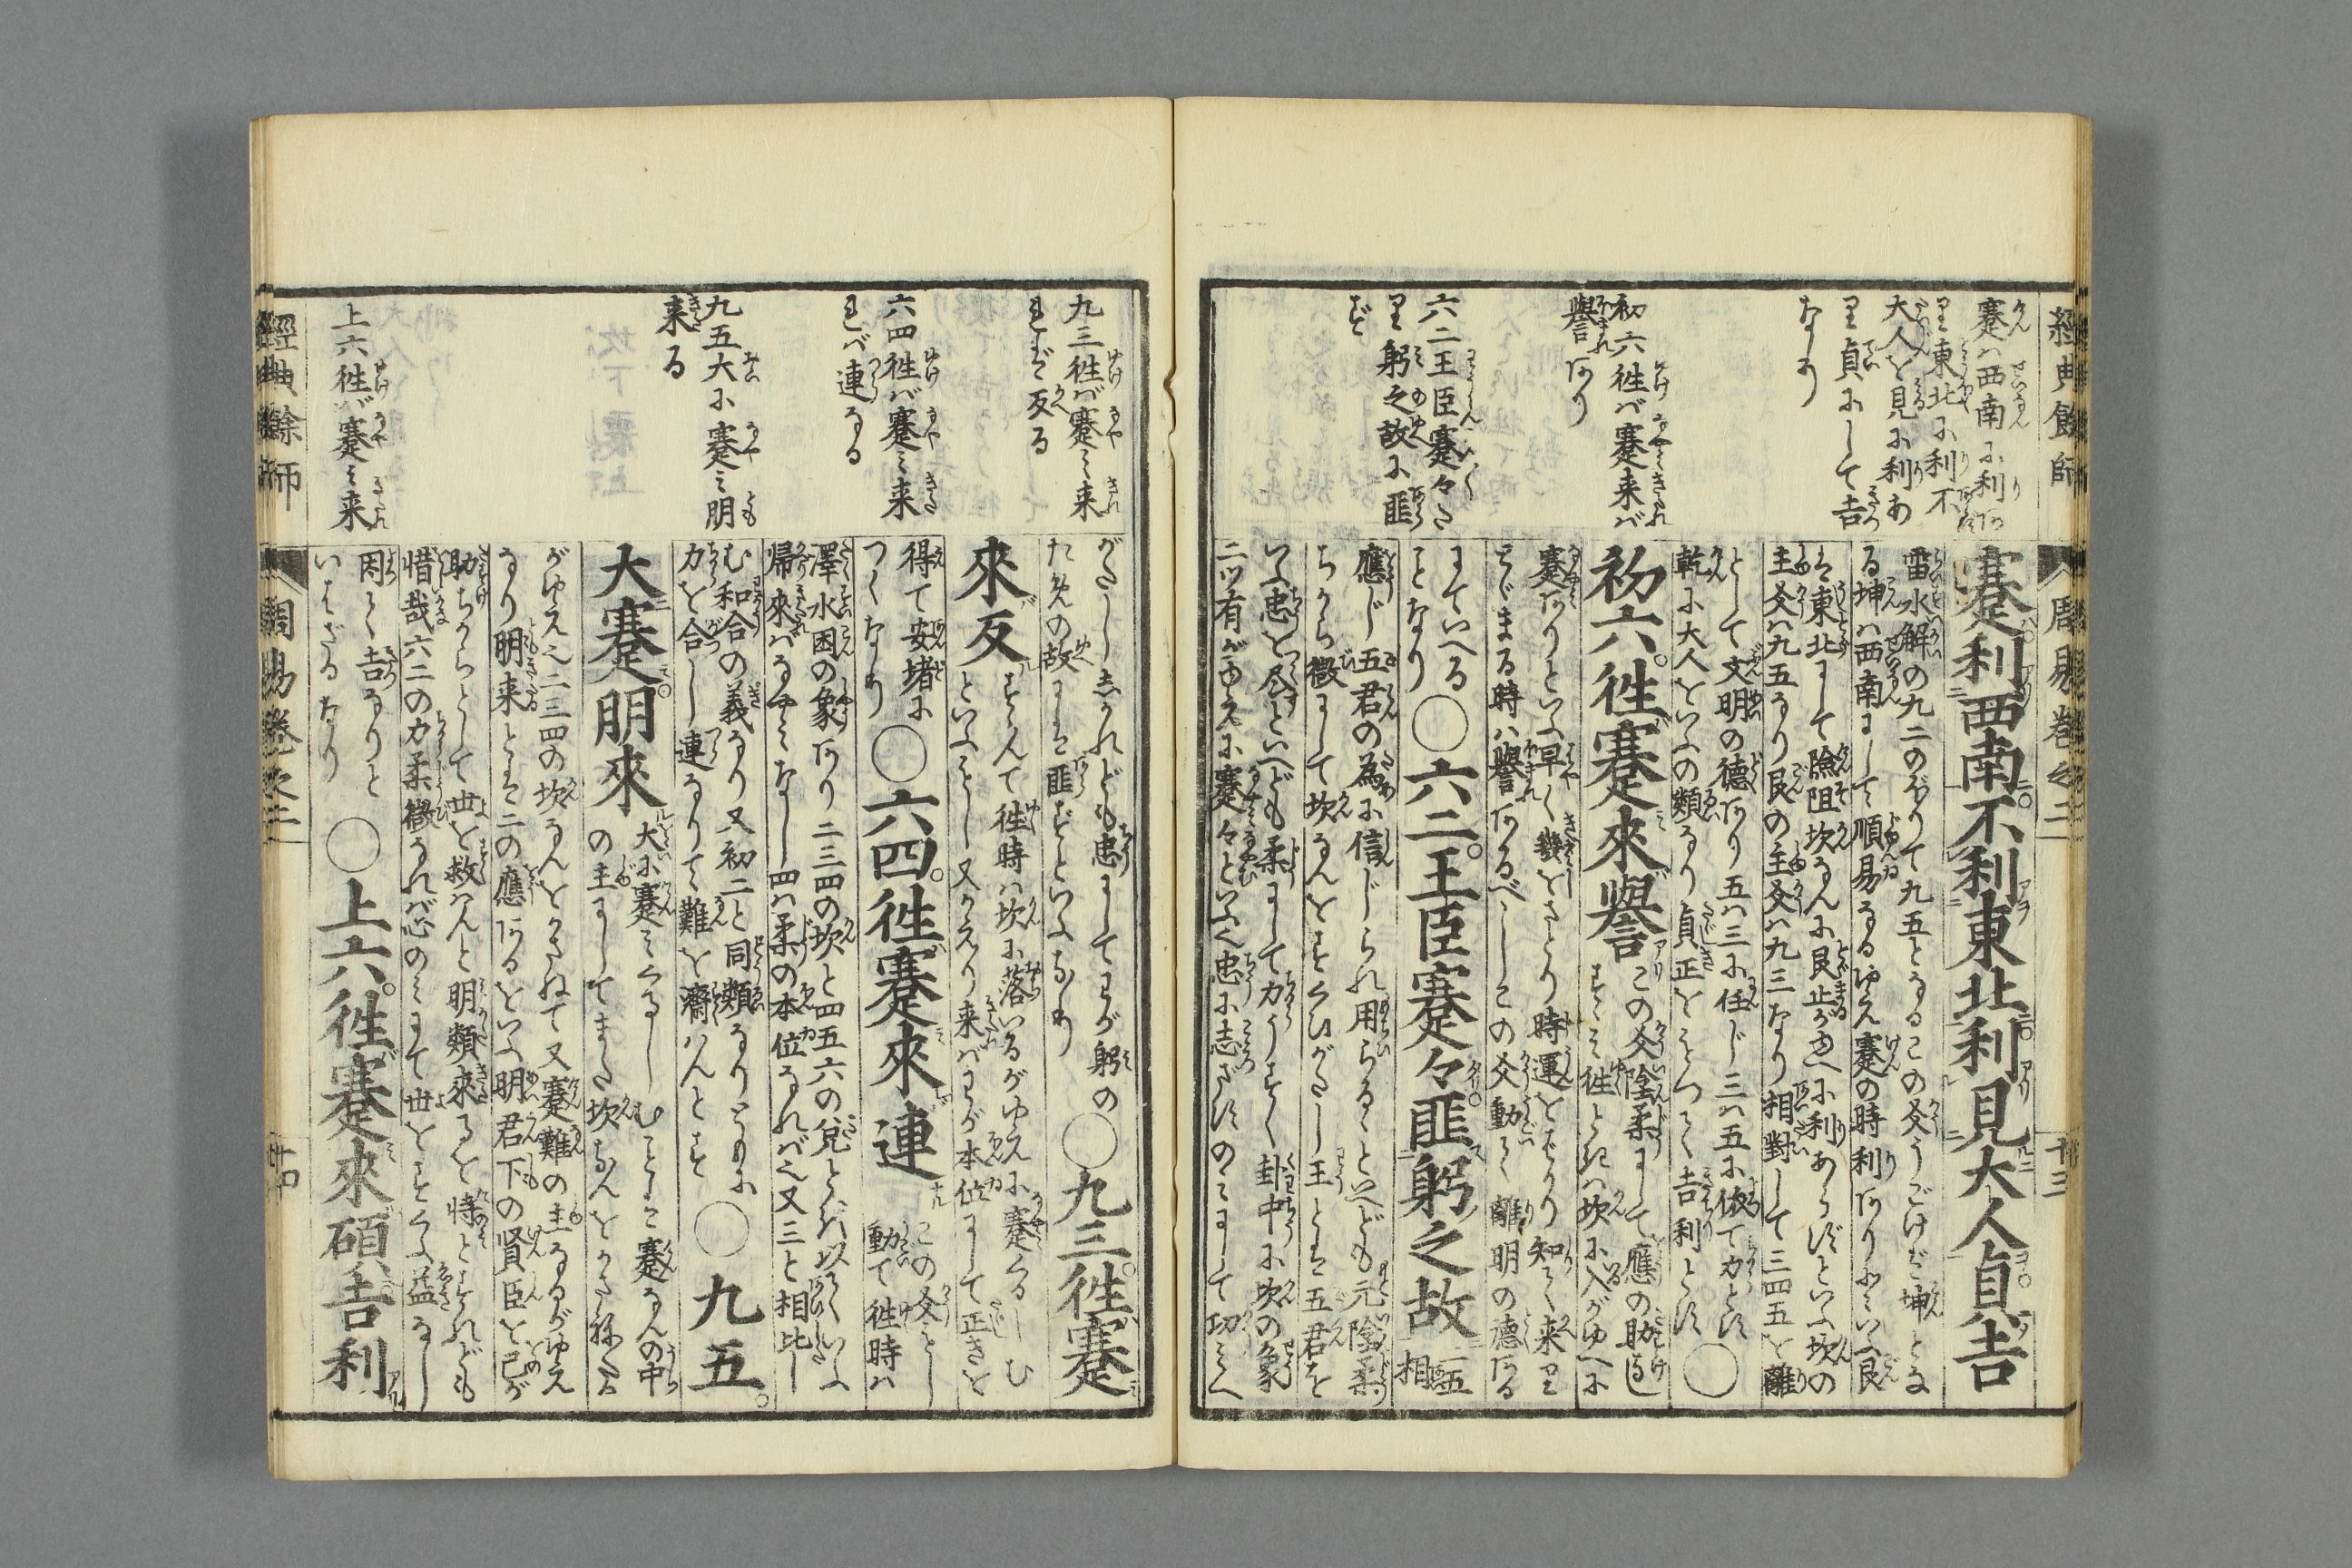 經典餘師
周易卷之二
十三
蹇ハ西南に利あ
り東北に利不
大人を見に利あ
り貞にして吉
なり
初六徃バ蹇来バ
譽あり
六二王臣蹇々た
り躬之故に匪
ず
蹇利西南不利東北利見大人貞吉
雷水解の九二のぼりて九五となるこの爻うごけバ坤とな
る坤ハ西南にして順易なるゆえ蹇の時利ありとこいふ艮
は東北にして險阻坎なんに艮止がゆへに利あらずといふ坎の
主爻ハ九五なり艮の主爻ハ九三なり相對して三四五を離
として文明の德あり五ハ三に任じ三ハ五に依て力とす
乾に大人をいふの類なり貞正をもつて吉利とす○
初六徃蹇來譽
この爻陰柔にして應の助なし
すゝミ徃ときハ坎に入がゆへに
蹇ありといふ早く幾をさとり時運をはかり知て来り
とゞまる時ハ譽あるべしこの爻動て離明の德ある
にていへる
ことなり
○六二王臣蹇々匪躬之故
二五
相
應じ五君の為に信じられ用らるゝといへども元陰柔
ちから微にして坎なんをすくひがたし王とは五君を
いふ忠を尽すといへども柔にして力うすく卦中に坎の象
二ツ有がゆえに蹇々といふ忠に志ざすのミにして功ミへ
九三徃バ蹇ミ来
れバ反る
六四徃バ蹇ミ来
れバ連なる
九五大に蹇ミ朋
来る
上六徃バ蹇ミ来
がたし志かれども忠にしてわが躬の
ための故には匪ずといふなり
○九三徃蹇
來反
すゝんて徃時ハ坎に落いるがゆえに蹇くるしむ
といふべし又かえり来バわが本位にして正きを
得て安堵に
つくなり
○六四徃蹇來連
この爻もし
動て徃時ハ
澤水困の象あり二三四の坎と四五六の兌とを以ていふ
帰來ハなやミなし四ハ柔の本位なれバ之又三と相比し
む和合の義なり又初二と同類なりともに
力を合し連なりて難を濟ハんとす
○九五
大蹇朋來
大に蹇ミくるしむとは蹇なんの中
の主にしてまた坎なんをかさねたる
がゆえ之二三四の坎なんをかさねて又蹇難の主なるがゆえ
なり朋来とは二の應あるをいふ明君下の賢臣を己が
助ちからとして世を救ハんと明類來るを恃とすれども
惜哉六二の力柔微なれバ心のミにて世をすくふ益なし
因て吉なりと
いはざるなり
○上六徃蹇來碩吉利
經典餘師
周易卷之二
十四